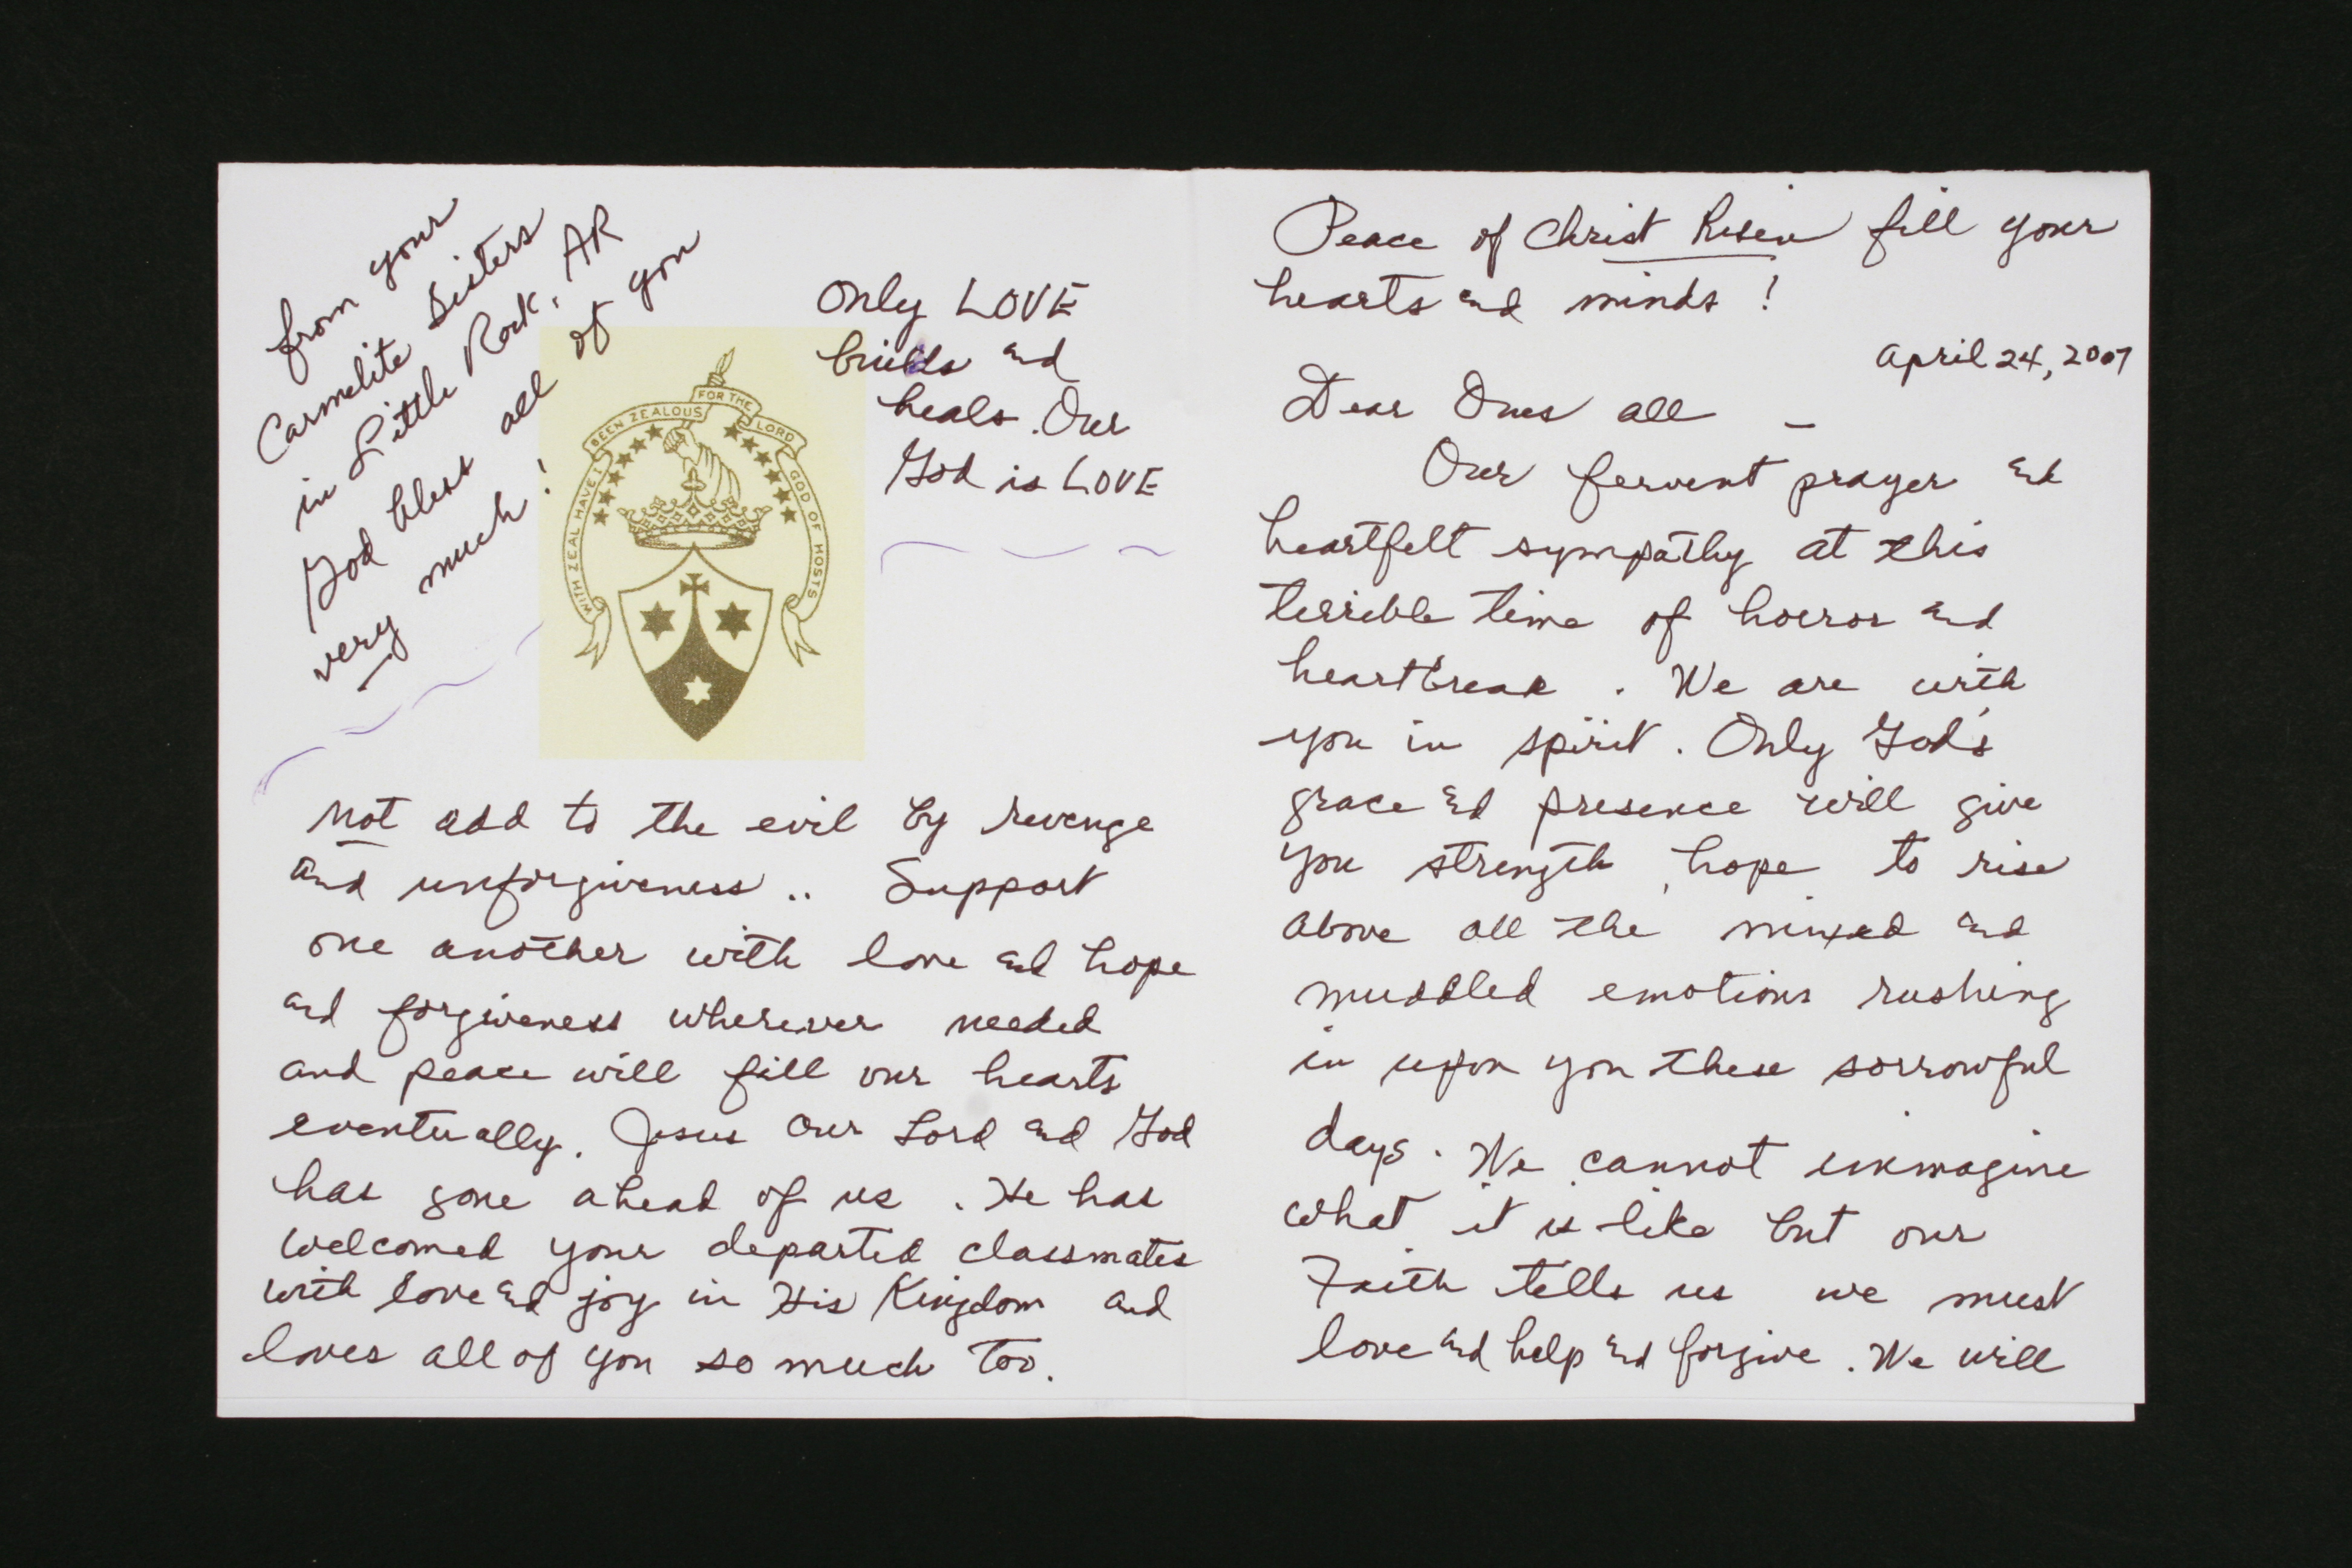 Peace of Christ Risen fill your
hearts and minds!
April 24, 2007
Dear Ones all –
Our fervent prayer and
heartfelt sympathy at this
terrible time of horror and
heartbreak. We are with
you in spirit. Only God's
grace and presence will give
you strength, hope to rise
above all the mixed and
muddled emotions rushing
in upon you these sorrowful
days. We cannot inmagine
what it is like but our
Faith tells us we must
love and help and forgive. We will
not add to the evil by revenge
and unforgiveness.. Support
one another with love and hope
and forgiveness wherever needed
and peace will fill our hearts
eventually. Jesus our Lord and God
has gone ahead of us. He has
welcomed your departed classmates
with love and joy in His Kingdom and
loves all of you so much too.
Only LOVE
builds and
heals. Our
God is LOVE
from your
Carmelite Sisters
in Little Rock, AR
God bless all of you
very much!
WITH ZEAL HAVE I BEEN ZEALOUS FOR THE LORD GOD OF HOSTS